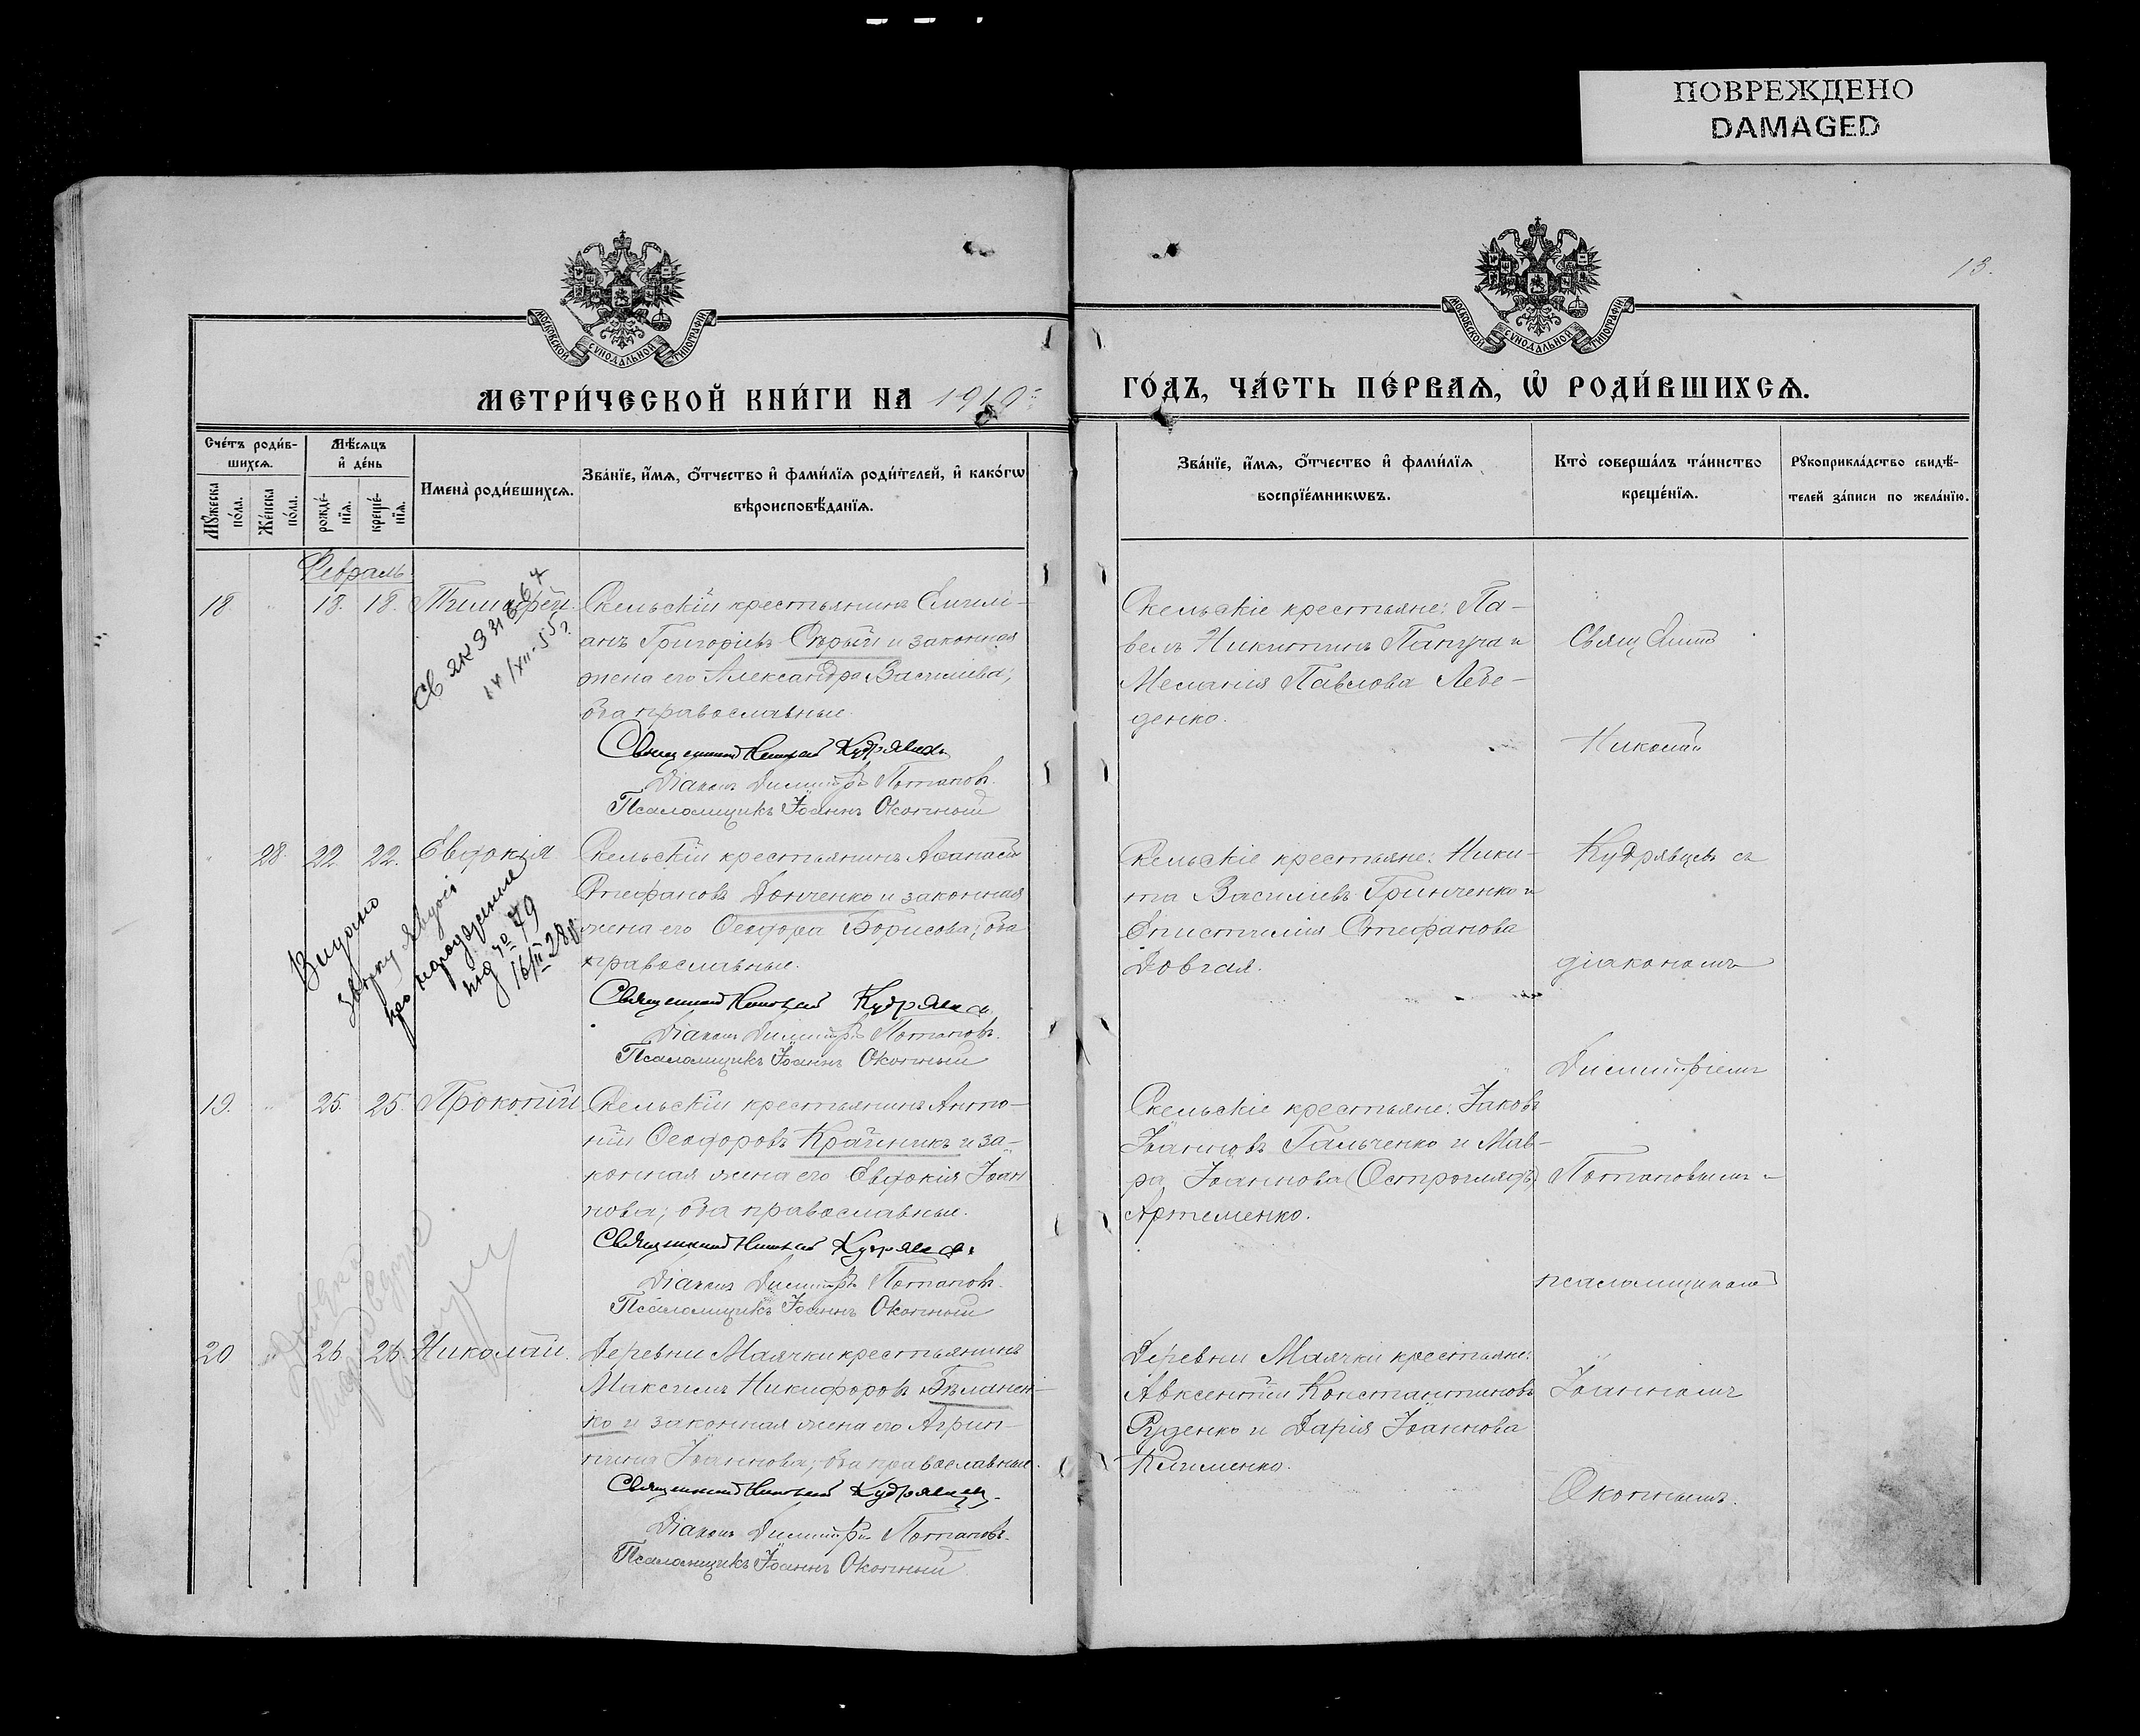 ПОВРЕЖДЕНО
DAMAGED
13.
МОСКОВСКОЙ СУНОДАЛЬНОЙ ТИПОГРАФІИ
МОСКОВСКОЙ СУНОДАЛЬНОЙ ТИПОГРАФІИ
МЕТРИ́ЧЕСКОЙ КНИ́ГИ НА 1910 ГО́ДЪ, ЧА́СТЬ ПЕ́РВАѦ, Ѡ РОДИ́ВШИХСѦ.
Сче́тъ роди́в-
шихсѧ.
Мꙋ́жеска по́ла.
Же́нска по́ла.
Мѣ́сѧцъ
и҆ де́нь
рожде́-
нїѧ.
креще́-
нїѧ.
Имена̀ роди́вшихсѧ.
Зва́нїе, и҆́мѧ, ѻ҆́тчество и҆ фами́лїѧ роди́телей, и҆ како́гѡ
вѣроисповѣ́данїѧ.
Зва́нїе, и҆́мѧ, ѻ҆́тчество и҆ фами́лїѧ
воспрїе́мникѡвъ.
Кто̀ соверша́лъ та́инство
креще́нїѧ.
Рꙋкоприкла́дство свидѣ́-
телей за́писи по жела́нїю.
Февраль
18 " 18. 18. Тимофей.
Скельскій крестьянинъ Емили-
анъ Григоріевъ Сѣрый и законная
жена его Александра Василіева;
оба православные.
Священникъ Николай Кудрявцевъ
Діаконъ Димитрій Потаповъ.
Псаломщикъ Іоаннъ Окопный
Скельскіе крестьяне: Па-
велъ Никитинъ Папуча и
Меланія Павлова Лебе-
денко.
Свящ
Николай
" 28. 22. 22. Евдокія
Скельскій крестьянинъ Аѳанасій
Стефановъ Донченко и законная
жена его Ѳеодора Борисова; оба
православные.
Священникъ Николай Кудрявцевъ
Діаконъ Димитрій Потаповъ.
Псаломщикъ Іоаннъ Окопный
Видано
про народження
під № 79
16/II 28 р
Скельскіе крестьяне: Ники-
та Василіевъ Гринченко и
Епистимія Стефанова
Довгая.
Кудрявцевъ съ
діакономъ
Димитріемъ
19. " 25. 25. Прокопій
Скельскій крестьянинъ Анто-
ній Ѳеодоровъ Крайникъ и за-
конная жена его Евдокія Іоан
нова; оба православные.
Священникъ Николай Кудрявцевъ
Діаконъ Димитрій Потаповъ.
Псаломщикъ Іоаннъ Окопный
Скельскіе крестьяне: Іаковъ
Іоанновъ Гальченко и Мав-
ра Іоаннова (Остроглядъ)
Артеменко.
Потаповымъ и
псаломщикомъ
20 " 26. 26. Николай.
Деревни Маячки крестьянинъ
Максимъ Никифоровъ Бѣланен-
ко и законная жена его Агрип-
пина Іоаннова; оба православные.
Священникъ Николай Кудрявцевъ
Діаконъ Димитрій Потаповъ.
Псаломщикъ Іоаннъ Окопный
Деревни Маячки крестьяне:
Авксентій Константиновъ
Руденко и Дарія Іоаннова
Клименко.
Іоанномъ
Окопнымъ.